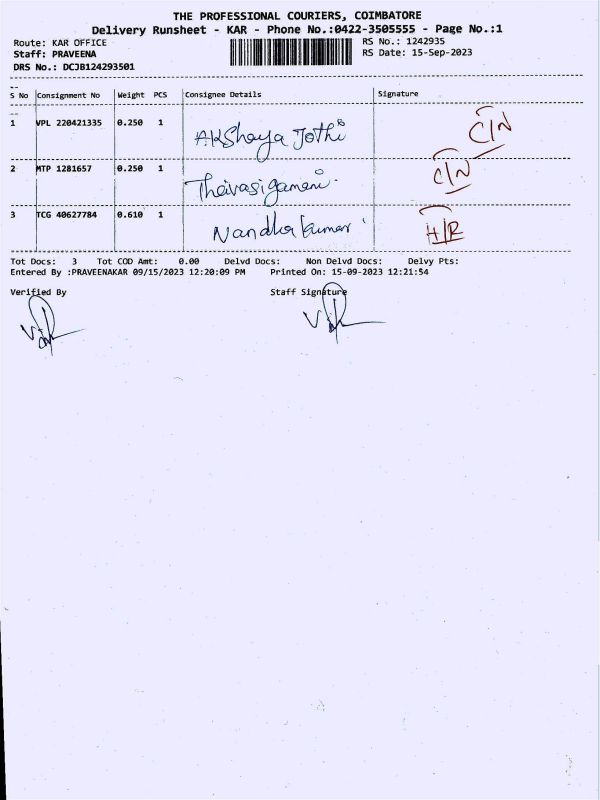 THE PROFESSIONAL COURIERS, COIMBATORE
Delivery Runsheet - KAR - Phone No.:0422-3505555 - Page No.:1
Route: KAR OFFICE RS No.: 1242935
Staff: PRAVEENA RS Date: 15-Sep-2023
DRS No.: DCJB124293501
S No Consignment No Weight PCS Consignee Details Signature
1 VPL 220421335 0.250 1 AKShaya Jothi C/N
2 MTP 1281657 0.250 1 Thaivasigamani. C/N
3 TCG 40627784 0.610 1 Nandha kumar H/R
Tot Docs: 3 Tot COD Amt: 0.00 Delvd Docs: Non Delvd Docs: Delvy Pts:
Entered By :PRAVEENAKAR 09/15/2023 12:20:09 PM Printed On: 15-09-2023 12:21:54
Verified By Staff Signature